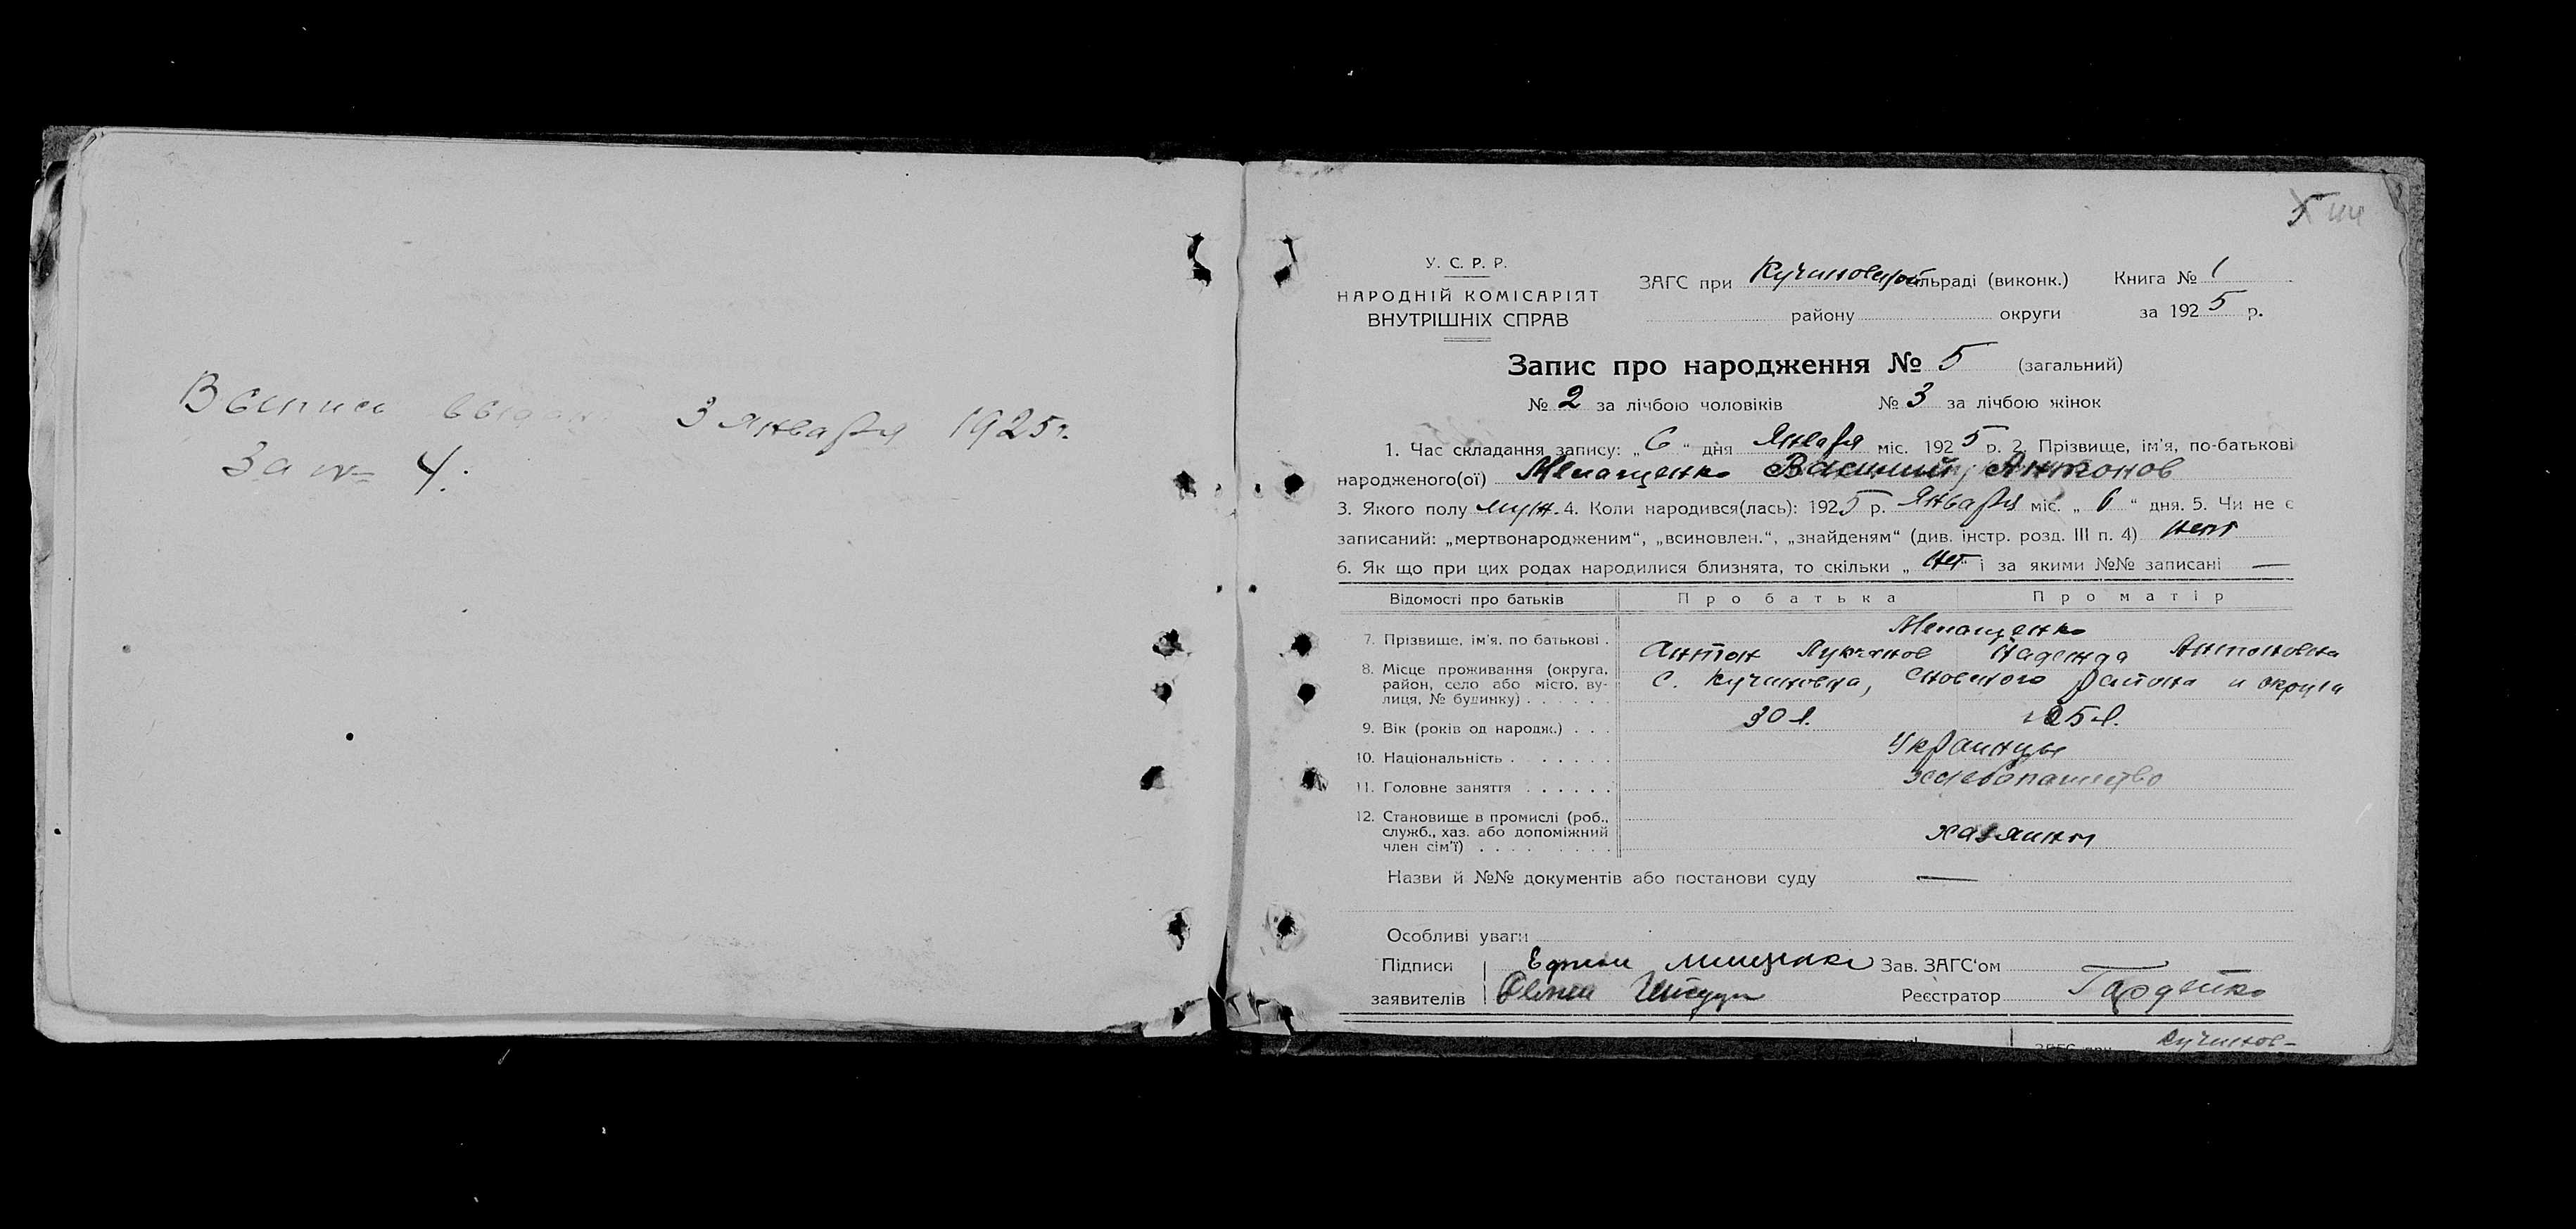 Выписка выдана 3 января 1925 г.
За № 4.
У. С. Р. Р.
НАРОДНІЙ КОМІСАРІЯТ
ВНУТРІШНІХ СПРАВ
ЗАГС при Кучиновской сільраді (виконк.) Книга № 1
району округи за 1925 р.
Запис про народження № 5 (загальний)
№ 2 за лічбою чоловіків № 3 за лічбою жінок
1. Час складання запису: „ 6 “ дня Января міс. 1925 р. 2. Прізвище, ім'я, по-батькові
народженого(ої) Василий, Антонов
3. Якого полу муж. 4. Коли народився(лась): 1925 р. Января міс. „ 6 “ дня. 5. Чи не є
записаний: „мертвонародженим“, „всиновлен.“, „знайденям“ (див. інстр. розд. III п. 4) нет
6. Як що при цих родах народилися близнята, то скільки „ нет “ і за якими №№ записані —
Відомості про батьків Про батька Про матір
7. Прізвище, ім'я, по батькові .
Антон Надежда Антоновна
8. Місце проживання (округа, район, село або місто, вулиця, № будинку) . . . . . . с. Кучиновка, Сновского района и округа
9. Вік (років од народж.) . . . 30 л. 25 л.
10. Національність . . . . . . . Украинцы
11. Головне заняття . . . . . . хлебопашество
12. Становище в промислі (роб., служб., хаз. або допоміжний член сім'ї) . . . . . . . . хазяины
Назви й №№ документів або постанови суду —
Особливі уваги
Підписи Зав. ЗАГС'ом
заявителів Реєстратор Гордейко
ЗАГС при Кучинов-